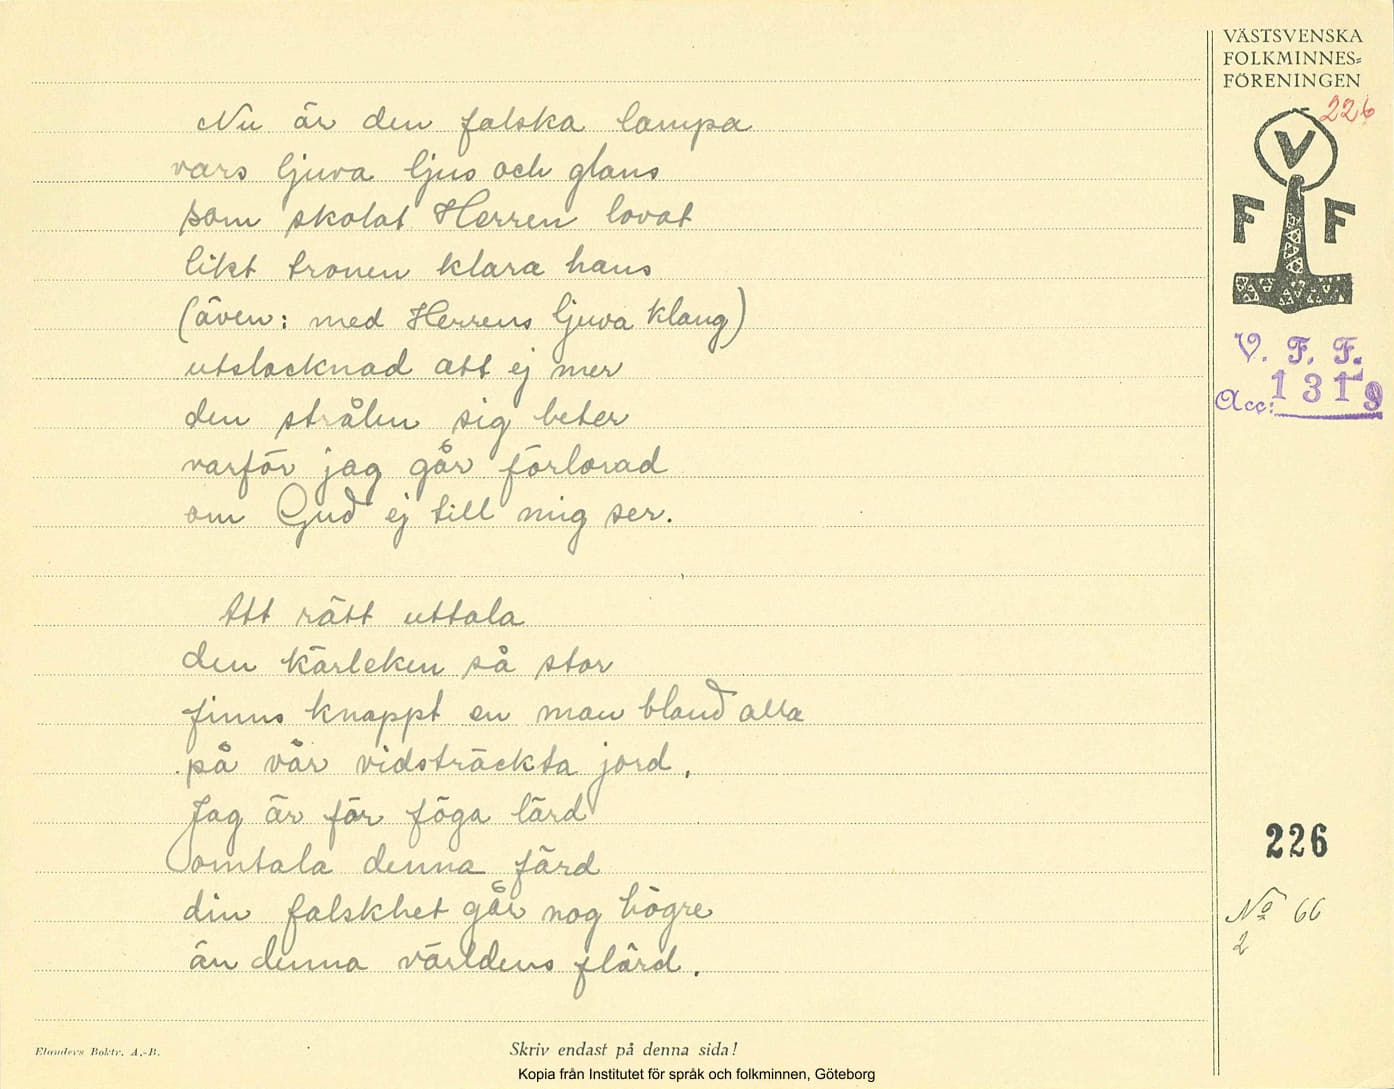 VÄSTSVENSKA
FOLKMINNES=
FÖRENINGEN
226
V
F F
V. F. F.
Acc: 1319
Nu är den falska lampa
vars ljuva ljus och glans
som skolat Herren lovat
likt tronen klara hans
(även: med Herrens ljuva klang)
utslocknad att ej mer
den strålen sig beter
varför jag går förlorad
om Gud ej till mig ser.
Att rätt uttala
den kärleken så stor
finns knappt en man bland alla
på vår vidsträckta jord,
Jag är för föga lärd
omtala denna färd
din falskhet går nog högre
än denna världens flärd.
226
No 66
2
Elanders Boktr. A.-B.
Skriv endast på denna sida!
Kopia från Institutet för språk och folkminnen, Göteborg